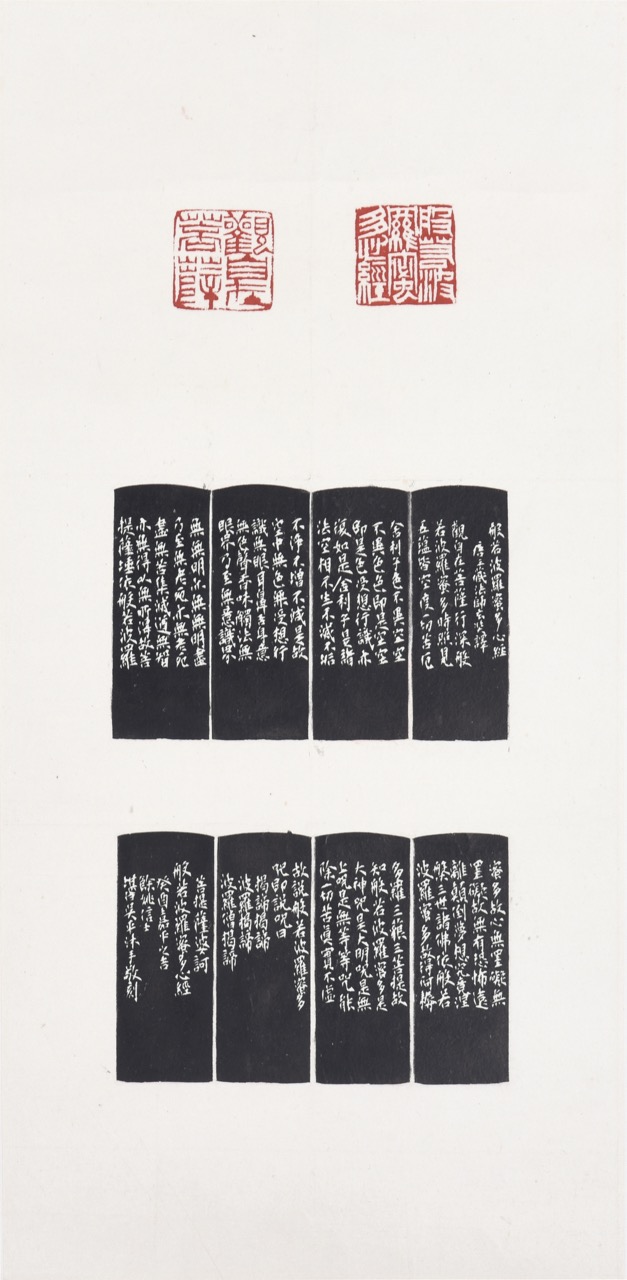 般若波
羅蜜
多心經
觀自在
菩薩
般若波羅蜜多心經
唐三藏法師玄奘譯
觀自在菩薩行深般
若波羅蜜多時照見
五蘊皆空度一切苦厄
舍利子色不異空空
不異色色即是空空
即是色受想行識亦
復如是舍利子是諸
法空相不生不滅不垢
不淨不增不減是故
空中無色無受想行
識無眼耳鼻舌身意
無色聲香味觸法無
眼界乃至無意識界
無無明亦無無明盡
乃至無老死亦無老死
盡無苦集滅道無智
亦無得以無所得故菩
提薩埵依般若波羅
蜜多故心無罣礙無
罣礙故無有恐怖遠
離顛倒夢想究竟涅
槃三世諸佛依般若
波羅蜜多故得阿耨
多羅三藐三菩提故
知般若波羅蜜多是
大神咒是大明咒是無
上咒是無等等咒能
除一切苦真實不虛
故說般若波羅蜜多
咒即說咒曰
揭諦揭諦
波羅揭諦
波羅僧揭諦
菩提薩婆訶
般若波羅蜜多心經
癸酉嘉平之吉
餘姚信士
堪白吳平沐手敬刻